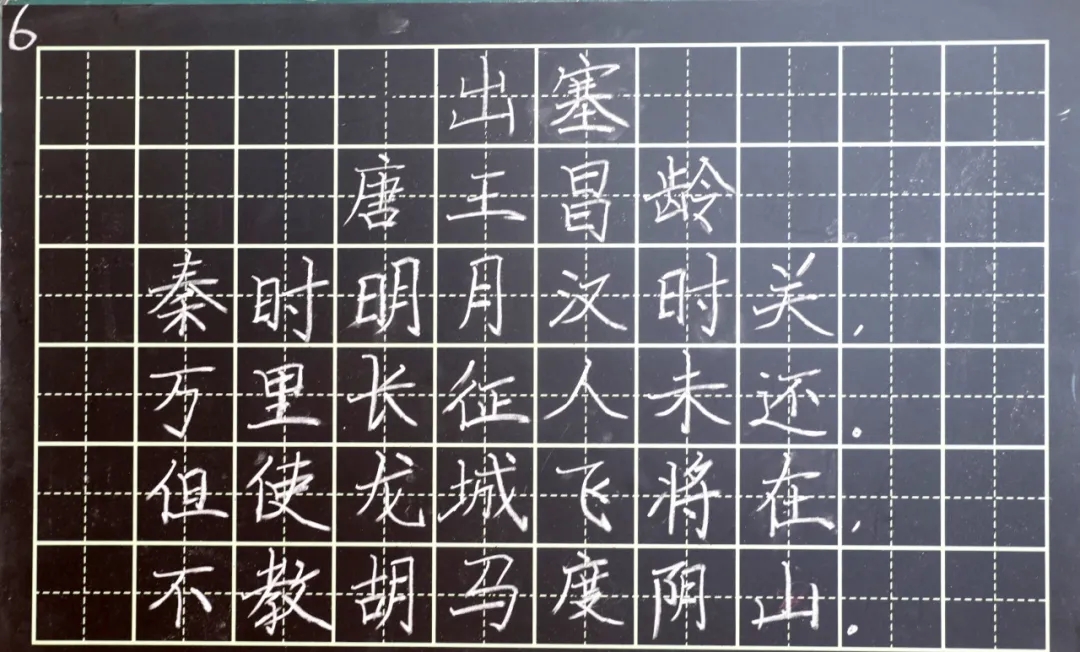 6
出塞
唐王昌龄
秦时明月汉时关，
万里长征人未还。
但使龙城飞将在，
不教胡马度阴山。